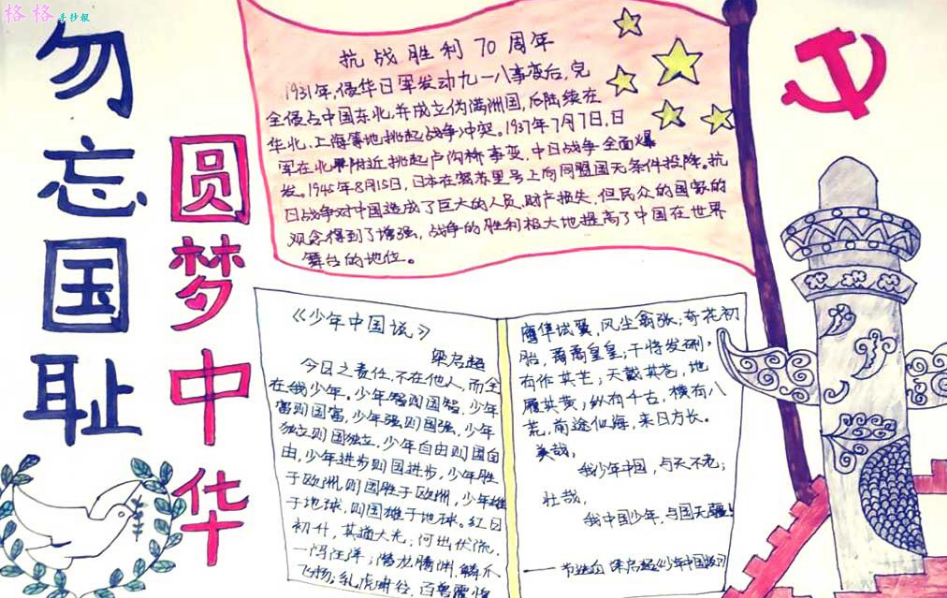 格格手抄报
勿忘国耻
圆梦中华
抗战胜利70周年
1931年，侵华日军发动九一八事变后，完
全侵占中国东北，并成立伪满洲国，后陆续在
华北、上海等地挑起战争冲突。1937年7月7日，日
军在北平附近挑起卢沟桥事变，中日战争全面爆
发。1945年8月15日，日本在密苏里号上向同盟国无条件投降。抗
日战争对中国造成了巨大的人员、财产损失，但民众的国家的
观念得到了增强，战争的胜利极大地提高了中国在世界
舞台的地位。
《少年中国说》
梁启超
今日之责任，不在他人，而全
在我少年。少年智则国智，少年
富则国富，少年强则国强，少年
独立则国独立，少年自由则国自
由，少年进步则国进步，少年胜
于欧洲，则国胜于欧洲，少年雄
于地球，则国雄于地球。红日
初升，其道大光；河出伏流，
一泻汪洋；潜龙腾渊，鳞爪
飞扬；乳虎啸谷，百兽震惶
鹰隼试翼，风尘翕张；奇花初
胎，矞矞皇皇；干将发硎，
有作其芒；天戴其苍，地
履其黄；纵有千古，横有八
荒，前途似海，来日方长。
美哉，
我少年中国，与天不老；
壮哉，
我中国少年，与国无疆！
——节选自 梁启超《少年中国说》